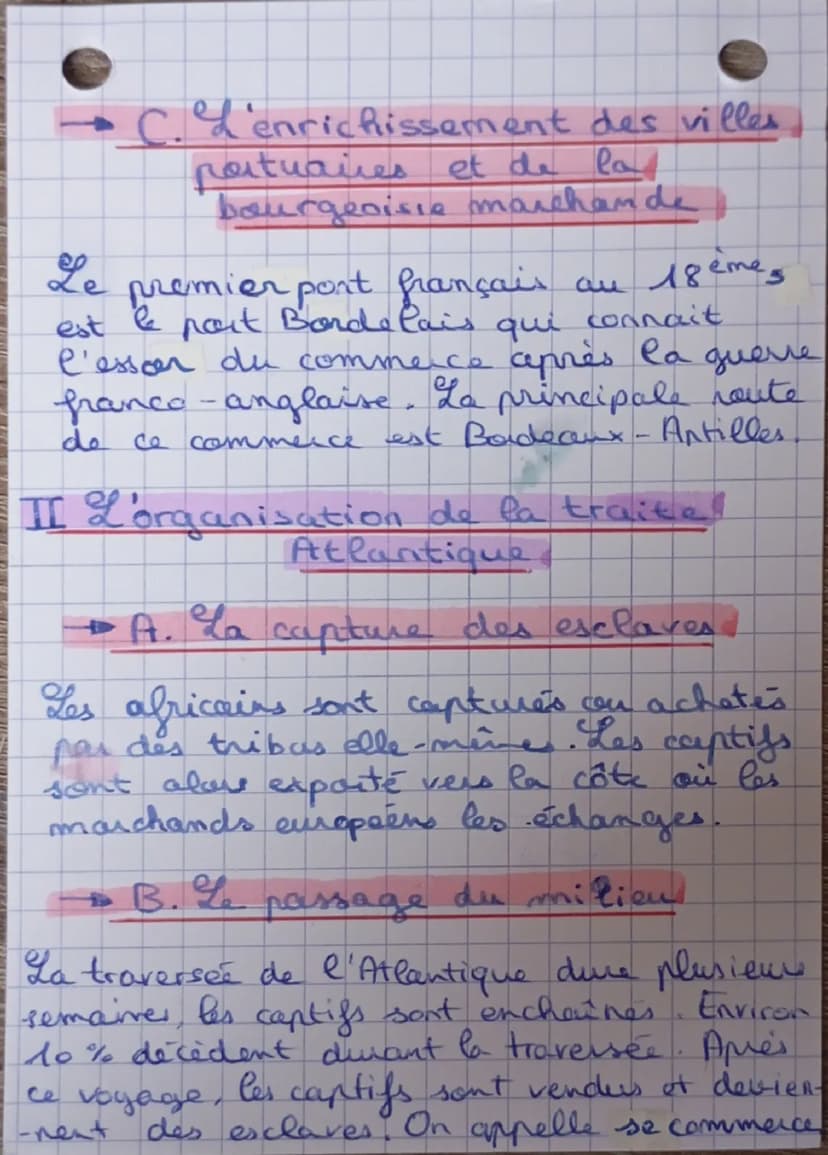 → C. L'enrichissement des villes
portuaires et de la
bourgeoisie marchande
Le premier port français au 18èmes
est le port Bordelais qui connait
l'essor du commerce après la guerre
franco-anglaise. La principale route
de ce commerce est Bordeaux - Antilles.
II L'organisation de la traite
Atlantique
→ A. La capture des esclaves
Les africains sont capturés ou achetés
par des tribus elle-mêmes. Les captifs
sont alors exporté vers la côte où les
marchands européens les échanges.
→ B. Le passage du milieu
La traversée de l'Atlantique dure plusieurs
semaines, les captifs sont enchaînés. Environ
10 % décèdent durant la traversée. Après
ce voyage, les captifs sont vendus et devien-
-nent des esclaves. On appelle se commerce